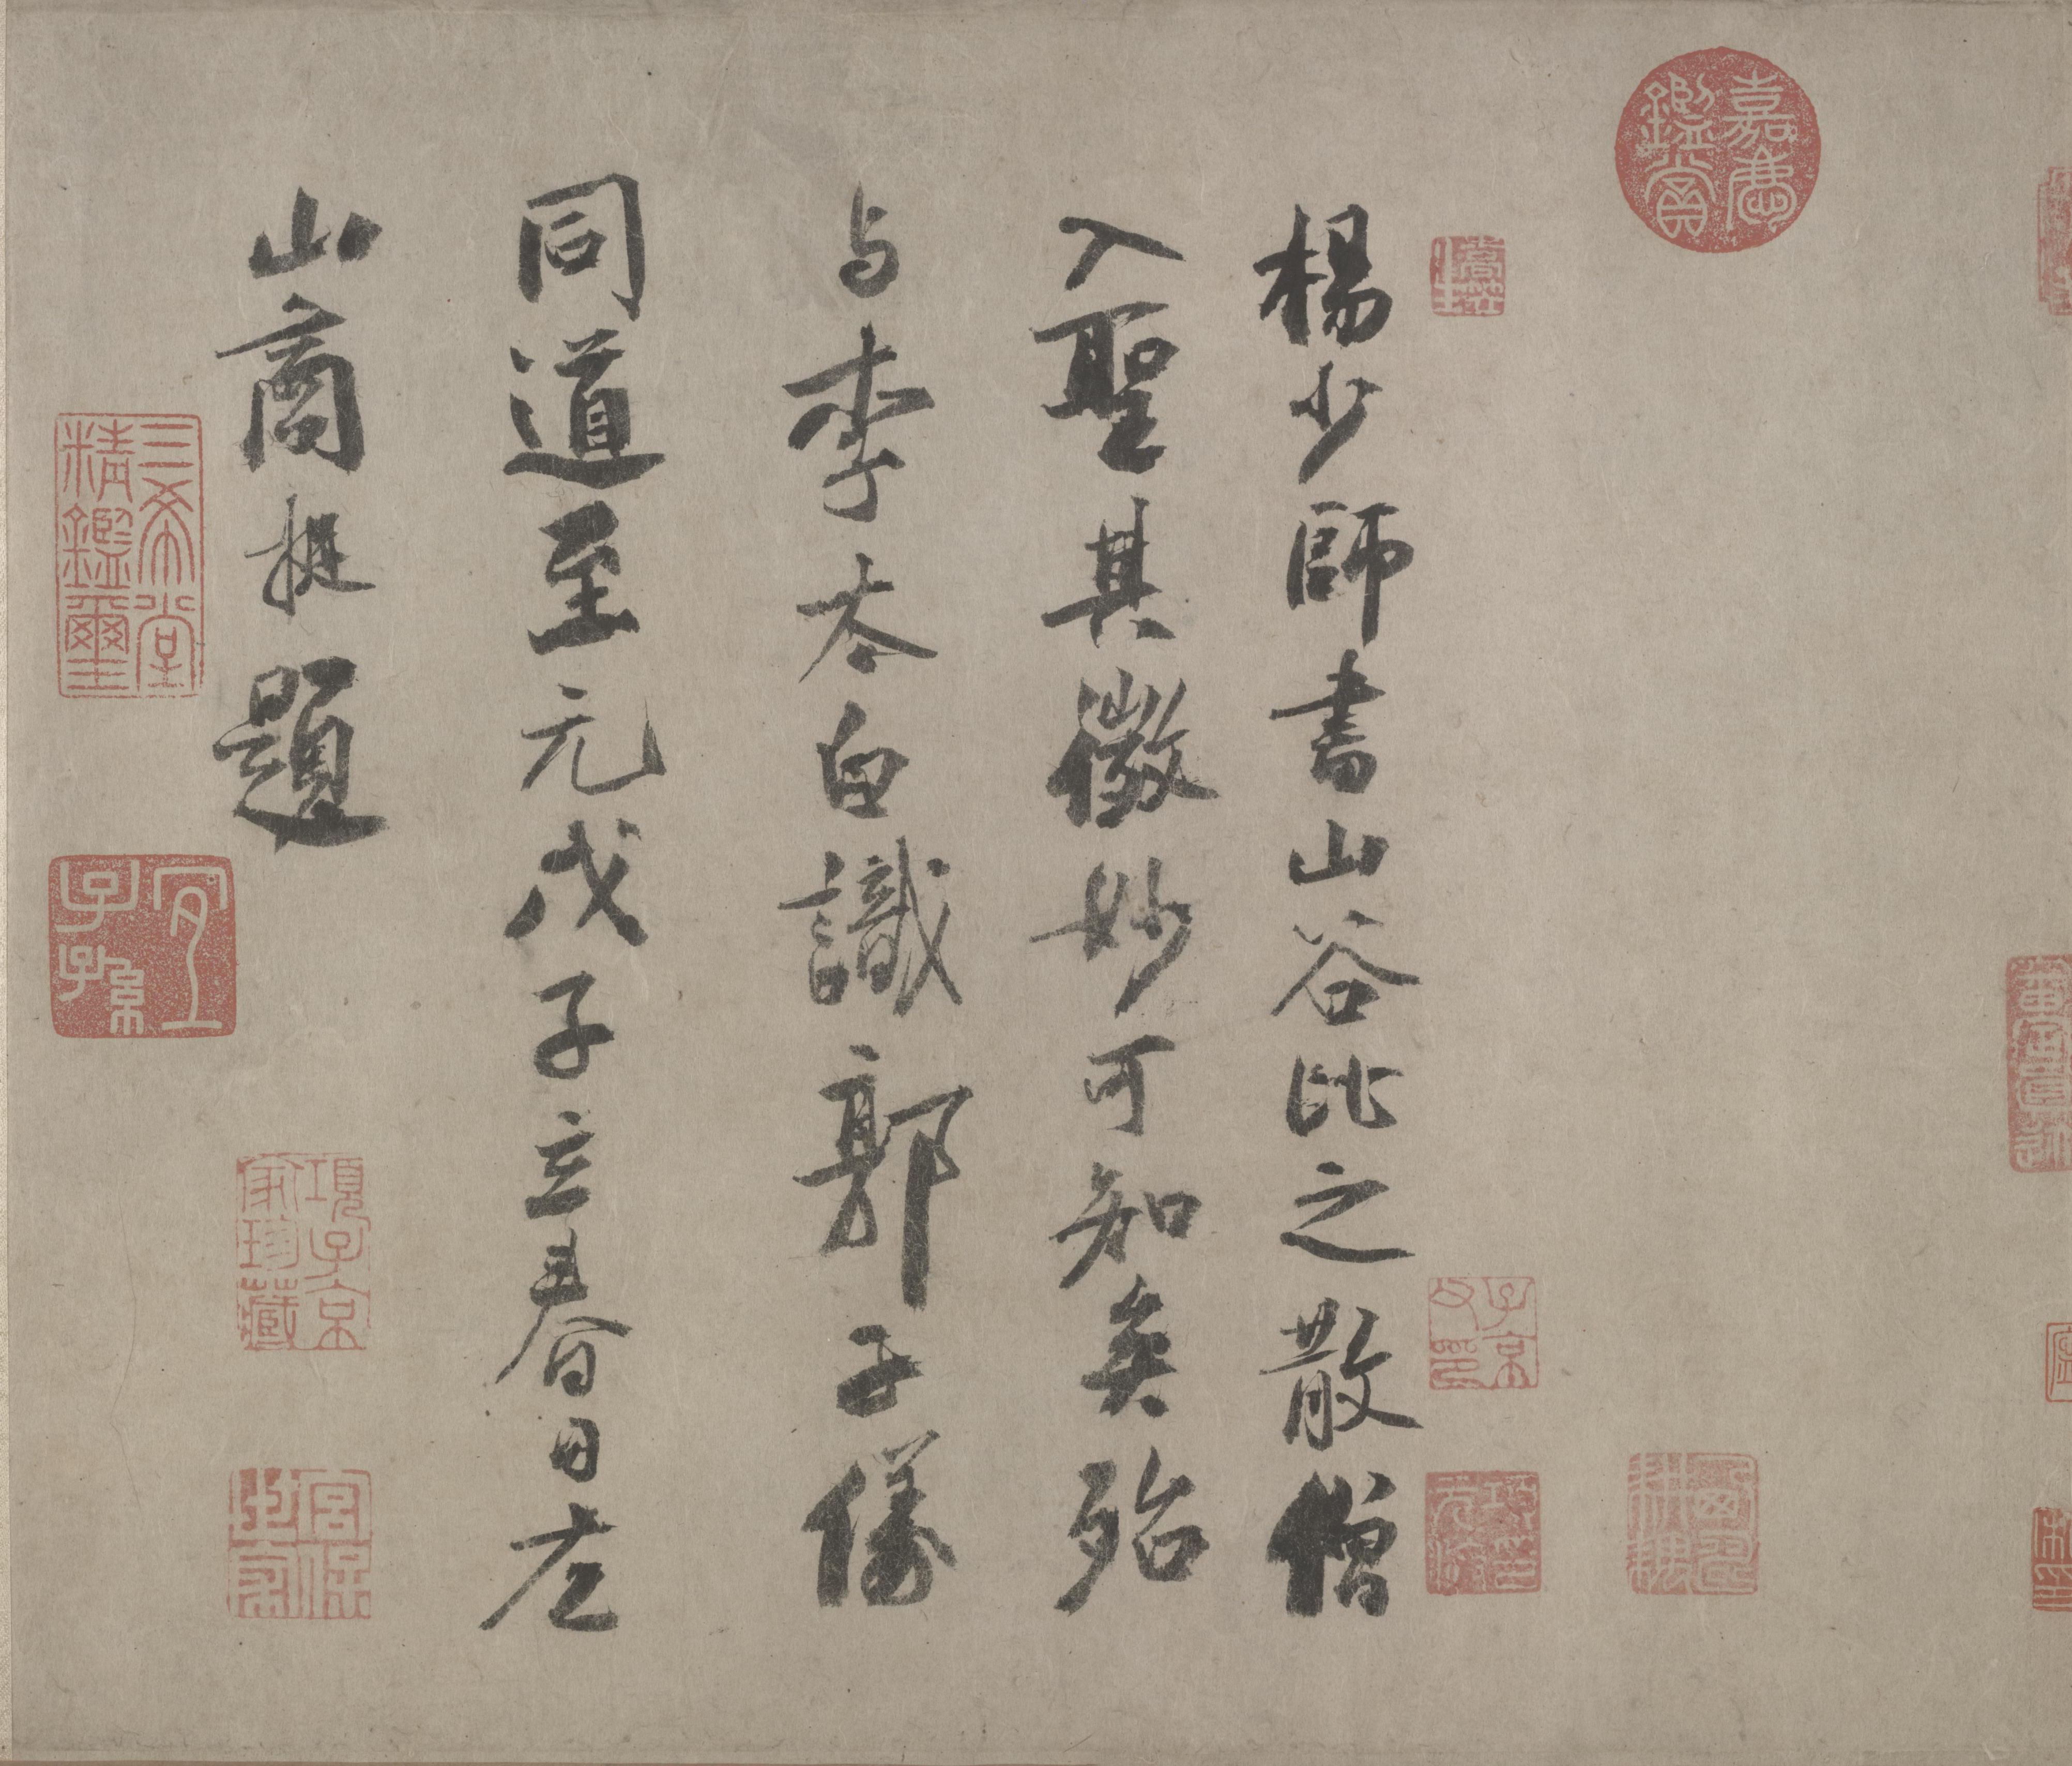 楊少師書山谷比之散僧
入聖其微妙可知矣殆
与李太白識郭子儀
同道至元戊子立春日左
山商挺題
嘉慶鑑賞
子京父印
項元汴印
三希堂精鑑璽
宜子孫
項子京家珍藏
宮保世家